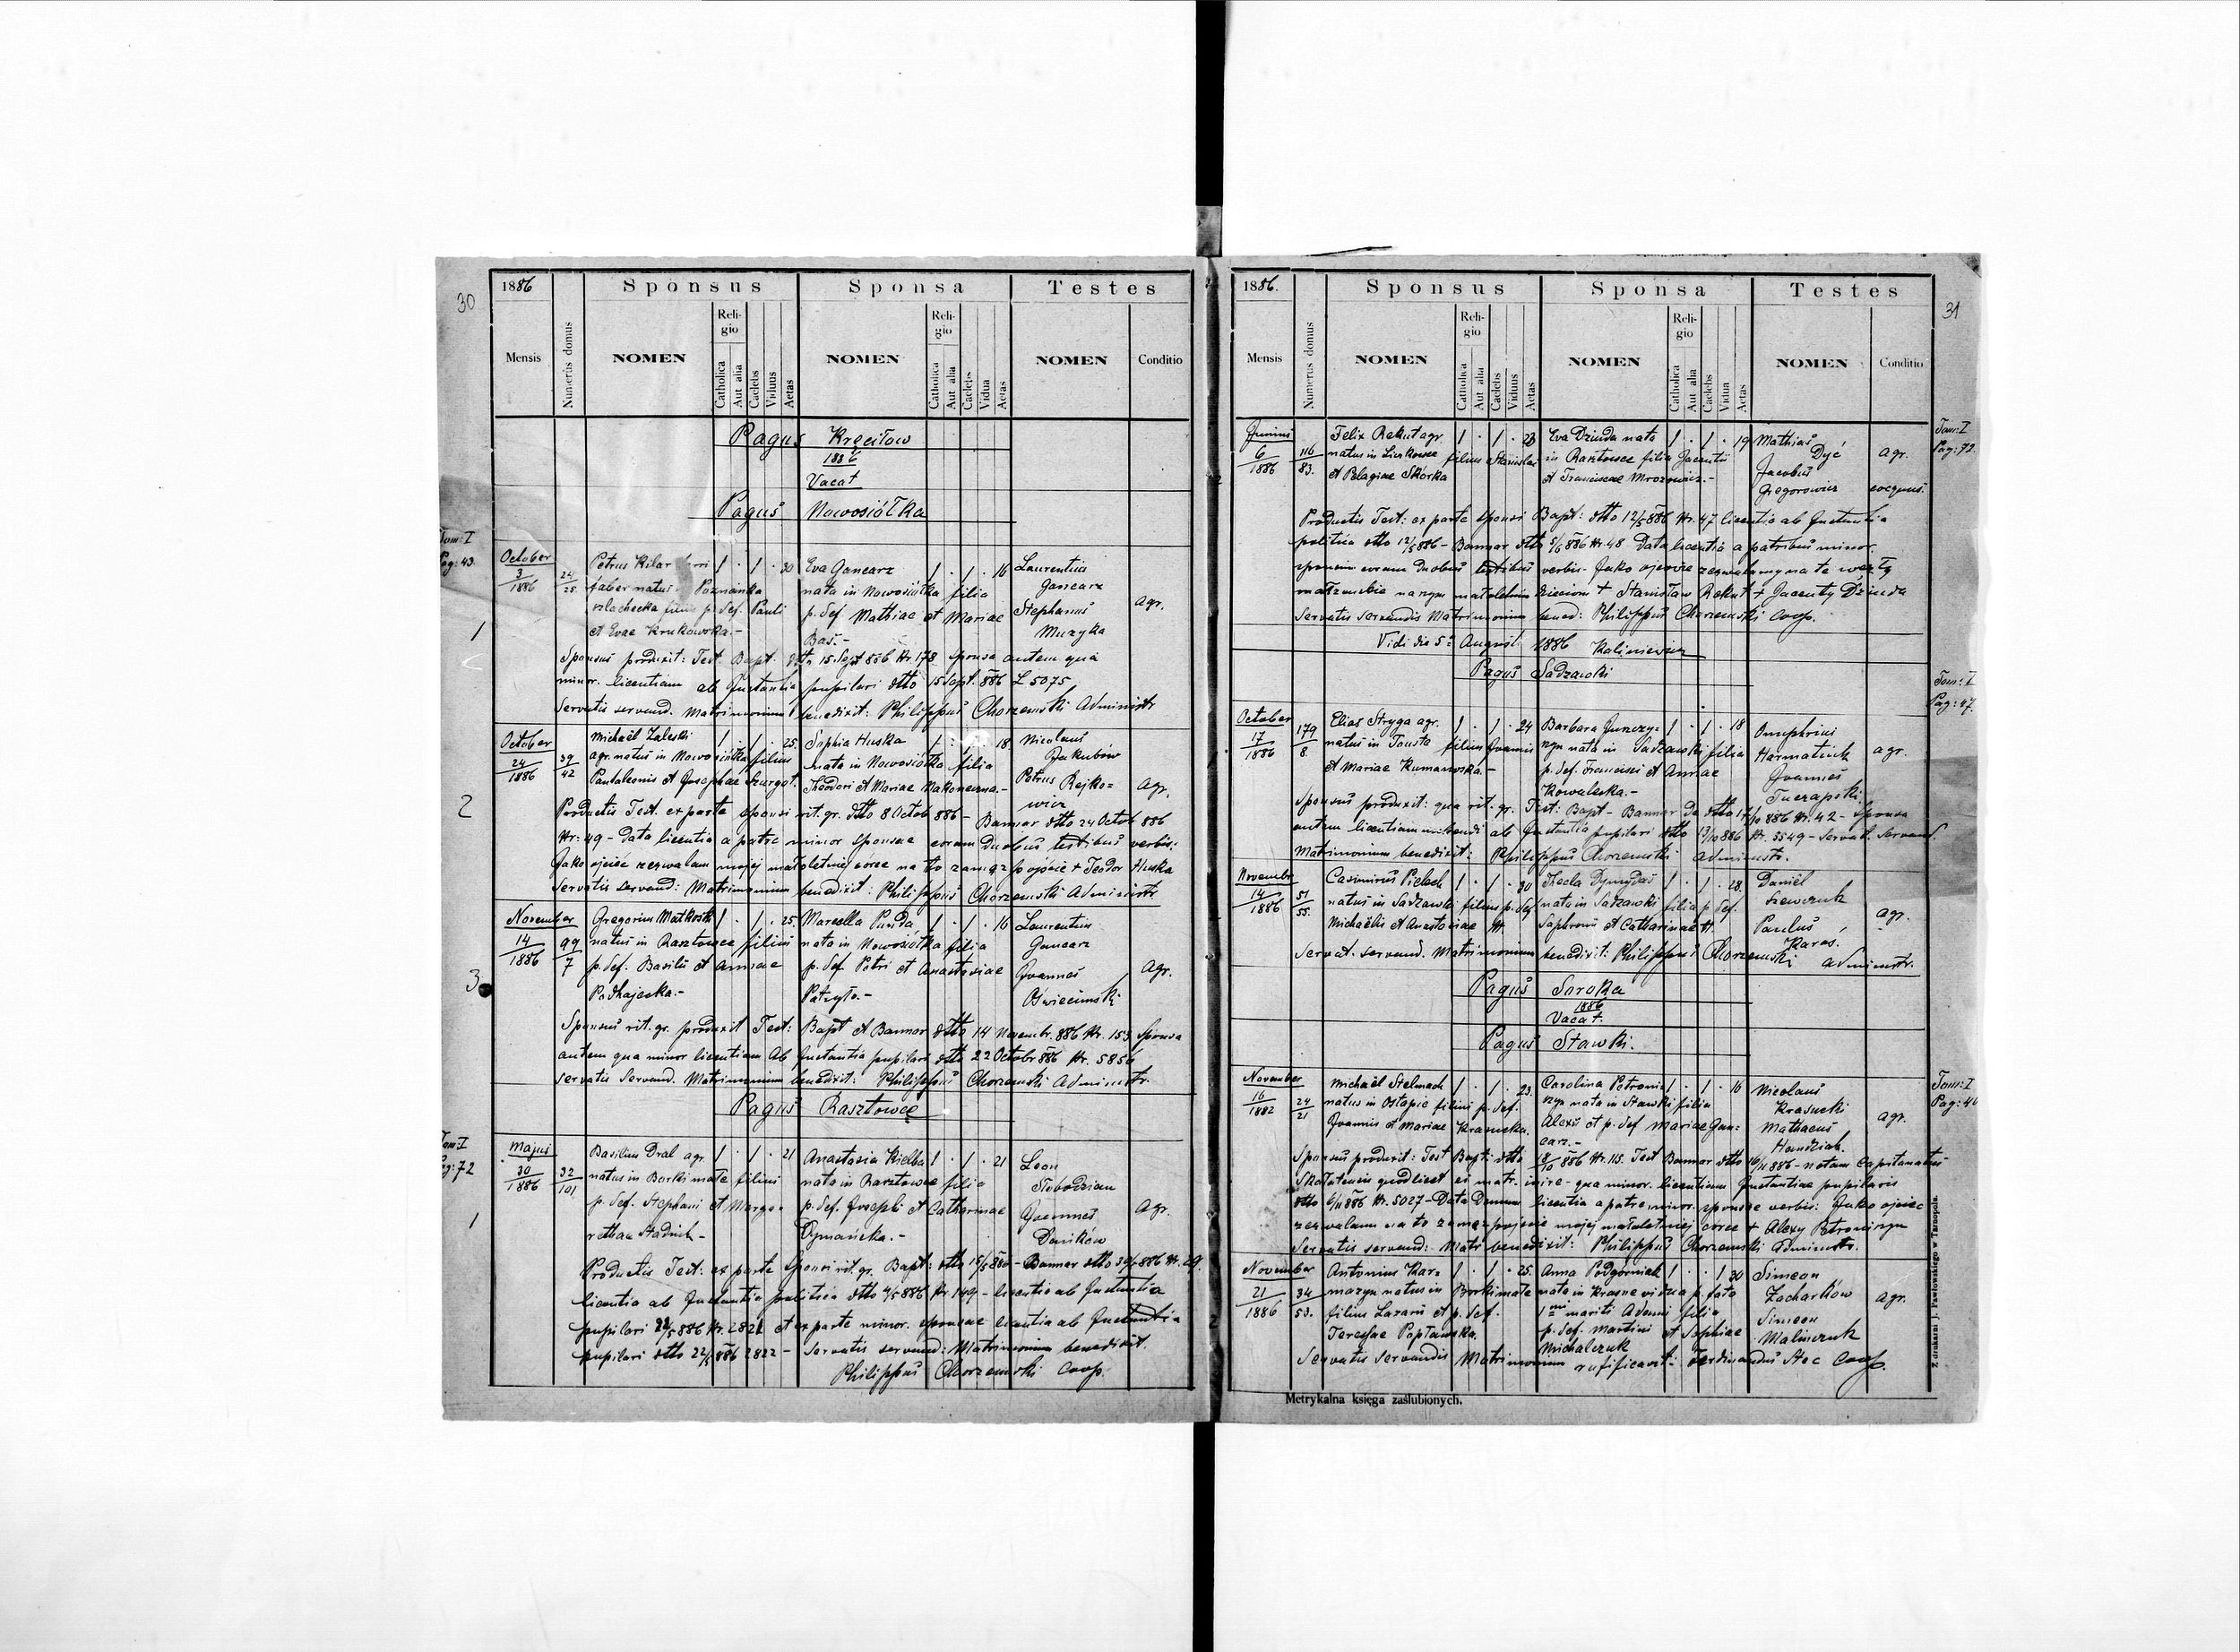 30
1886
Sponsus
Sponsa
Testes
Mensis
Numerus domus
NOMEN
Religio
Catholica
Aut alia
Caelebs
Viduus
Aetas
NOMEN
Religio
Catholica
Aut alia
Caelebs
Vidua
Aetas
NOMEN
Conditio
Pagus Kręciłow
1886
Vacat
Pagus Nowosiółka
Tom: I
Pag: 43
1
October
3
1886
24
25
Petrus Kilar
faber natus Poznanka
szlachecka filius p. def. Pauli
et Evae Krukowska.-
1 . 1 . 30
Eva Gancarz
nata in Nowosiółka filia
p. def Mathiae et Mariae
Bas.-
1 . 1 . 16
Laurentius
Gancarz
Stephanus
Muzyka
agr.
Sponsus produxit: Test. Bapt. dtto 15 Sept 886 Nr. 178 Sponsa autem qua
minor. licentiam ab Instantia pupilari dtto 15 Sept. 886 L 5075
Servatis servand. Matrimonium benedixit: Philippus Chorzemski Administr
2
October
24
1886
39
42
Michaël Zaleski
agr. natus in Nowosiółka filius
Pantaleonis et Josephae Szurgot.
1 . 1 . 25.
Sophia Huska
nata in Nowosiółka filia
Theodori et Mariae Nakoneczna.-
18.
Nicolaus
Jakubów
Petrus Rejko=
wicz
Agr.
Productis Test. ex parte sponsi rit. gr. dtto 8 Octob 886 - Bannor dtto 24 Octob 886
Nr: 49 - Data licentia a patre minor sponsae coram duobus testibus verbis:
Jako ojciec zezwalam mojej małoletniej córce na to zamąż pójście + Teodor Huska
Servatis servand: Matrimonium benedixit: Philippus Chorzemski Administr
3
November
14
1886
99
7
Gregorius Matkosk
natus in Rasztowce filius
p. def. Basilii et Annae
Podhajecka.-
1 . 1 . 25.
Marcella Punda
nata in Nowosiółka filia
p. def Petri et Anastasiae
1 . 1 . 16
Laurentius
Gancarz
Joannes
Oświecimski
Agr.
Sponsus rit. gr. produxit Test: Bapt et Bannor dtto 14 Novembr. 886 Nr. 153 Sponsa
autem qua minor licentiam ab Instantia pupilari dtto 22 Octobr 886 Nr. 5856
Servatis Servand. Matrimonium benedixit: Philippus Chorzemski Administr.
Pagus Rasztowce
Tom: I
Pag: 72
1
Majus
30
1886
32
101
Basilius Dral agr
natus in Borki małe filius
p. def. Stephani et Marga=
rethae Stadnik -
1 . 1 . 21
Anastasia Kiełba
nata in Rasztowce filia
p. def. Josephi et Catharinae
Dymańska.-
1 . 1 . 21
Leon
Słobodzian
Joannes
Daników
Agr.
Productis Test: ex parte Sponsi rit. gr. Bapt: dtto 15/5 886 - Bannor dtto 30/5 886 Nr. 29.
licentia ab Instantia politica dtto 4/5 886 Nr 149 - licentia ab Instantia
pupilari 22/5 886 Nr. 2821 et ex parte minor. sponsae licentia ab Instantia
pupilari dtto 22/5 886 2822 - Servatis servand: Matrimonium benedixit.
Philippus Chorzemski Coop.
31
1886.
Sponsus
Sponsa
Testes
Mensis
Numerus domus
NOMEN
Religio
Catholica
Aut alia
Caelebs
Viduus
Aetas
NOMEN
Religio
Catholica
Aut alia
Caelebs
Vidua
Aetas
NOMEN
Conditio
Tom: I
Pag: 72
Junius
6
1886
116
83.
Felix Rekut agr
natus in filius Stanislai
et Pelagiae Skórka
1 . 1 . 23
Eva Dziuda nata
in Rasztowce filia Jacentii
et Franciscae Mrozowicz.-
1 . 1 . 19
Mathias
Dyć
Jacobus
Gregorowicz
agr.
Productis Test: ex parte sponsi Bapt: dtto 12/5 886 Nr. 47 licentia ab Instantia
politica dtto 12/5 886 - Bannor dtto 5/6 886 Nr. 48 Data licentia a patribus minor.
sponsorum coram duobus testibus verbis. Jako ojcowie zezwalamy na te węzły
małżeńskie naszym małoletnim dzieciom + Stanisław Rekut + Jacenty Dziuda
Servatis servandis Matrimonium bened: Philippus Chorzemski Coop.
Vidi die 5a August. 1886 Kaliniewicz
Pagus Sadzawki
Tom: I
Pag: 47.
October
17
1886
179
8.
Elias Stryga agr.
natus in Touste filius Joannis
et Mariae Kumanowska.-
1 . 1 . 24
Barbara
nata in Sadzawki filia
p. def. Francisci et Annae
Kowalska.-
1 . 1 . 18
Onuphrius
Harmatiuk
Joannes
Tuczapski
agr.
Sponsus produxit: qua rit. gr. Test: Bapt - Bannor dtto 17/10 886 Nr. 42 - Sponsa
autem licentiam nubendi ab Instantia pupilari dtto 13/10 886 Nr. 5549 - Servat. Servand.
Matrimonium benedixit: Philippus Chorzemski Administr.
Novembr
14
1886
51
55.
Casimirus Pielech
natus in Sadzawki filius p. def
Michaëlis et Anastasiae
1 . 1 . 30
Thecla Dymydas
nata in Sadzawki filia p. def.
Saphronii et Catharinae
1 . 1 . 28.
Daniël
Szewczuk
Paulus
Karaś.
agr.
Servat. servand. Matrimonium benedixit: Philippus Chorzemski Administr.
Pagus Soroka
1886
Vacat.
Pagus Stawki.
Tom: I
November
16
1882
24
21
Michaël Stelmach
natus in Ostapie filius p. def.
Joannis et Mariae Krasucka.
1 . 1 . 23.
Carolina Petroni=
szyn nata in Stawki filia
Alexii et p. def Mariae Gan=
carz.-
1 . 1 . 16
Nicolaus
Krasucki
Mathaeus
Handziak
agr.
Sponsus produxit: Test Bapt: dtto 18/10 886 Nr. 115. Test Bannor dtto 16/11 886 - notam Capitanatus
Skałatensis quod licet ei matr. inire - qua minor. licentiam Instantiae pupilaris
dtto 6/11 886 Nr. 5027 - Data Demum licentia a patre minor. sponsae verbis: Jako ojciec
zezwalam na to zamąż pojście mojej małoletniej córce + Alexy Petroniszyn
Servatis servand: Matr. benedixit: Philippus Chorzemski Administr.
November
21
1886
34
53.
Antonius Kar=
mazyn natus in Borki małe
filius Lazarii et p. def.
Teresiae Popławska.
1 . 1 . 25.
Anna Podgórniak
nata in Krasne vidua p. fata
1mi mariti Adami filia
p. def. Martini et Sophiae
Michalczuk
1 . . 1 30
Simeon
Zacharków
Simeon
Malinczuk
agr.
Servatis Servandis Matrimonium ratificavit: Ferdinandus Stec Coop.
Metrykalna księga zaślubionych.
Z drukarni J. Pawłowskiego w Tarnopolu.